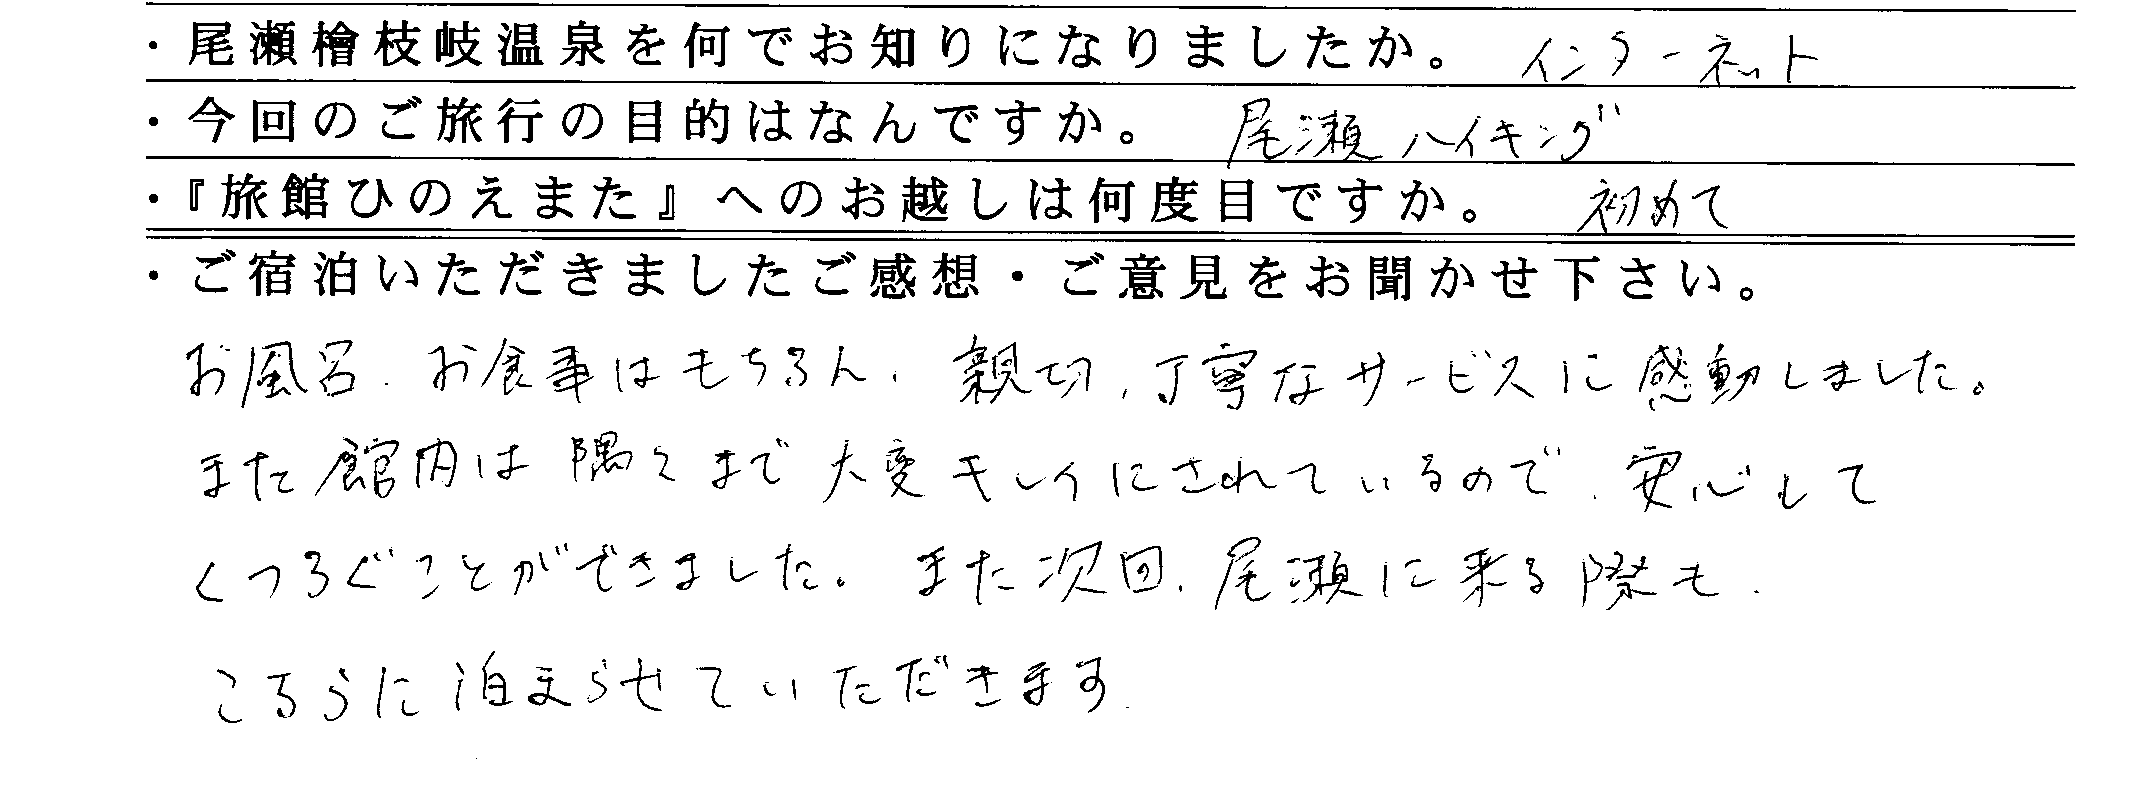 ・尾瀬檜枝岐温泉を何でお知りになりましたか。 インターネット
・今回のご旅行の目的はなんですか。 尾瀬ハイキング
・『旅館ひのえまた』へのお越しは何度目ですか。 初めて
・ご宿泊いただきましたご感想・ご意見をお聞かせ下さい。
お風呂、お食事はもちろん、親切、丁寧なサービスに感動しました。
また館内は隅々まで大変キレイにされているので、安心して
くつろぐことができました。また次回、尾瀬に来る際も、
こちらに泊まらせていただきます.